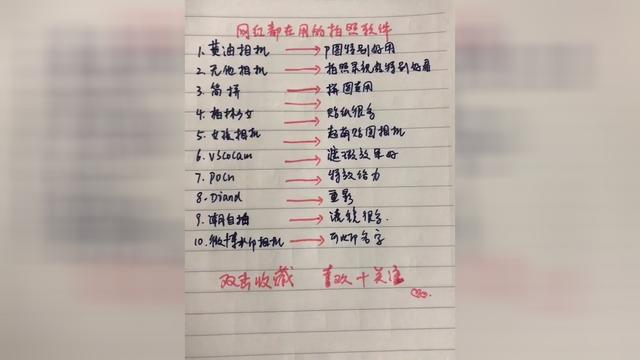 网红都在用的拍照软件
1. 黄油相机 → P图特别好用
2. 无他相机 → 拍照录视频特别好看
3. 简拼 → 拼图专用
4. 柏林少女 → 贴纸很多
5. 女孩相机 → 超萌贴图相机
6. Vscocam → 滤镜效果好
7. Pocn → 特效给力
8. Diand → 重影
9. 潮自拍 → 滤镜很多
10. 微博水印相机 → 可水印名字
双击收藏 喜欢+关注